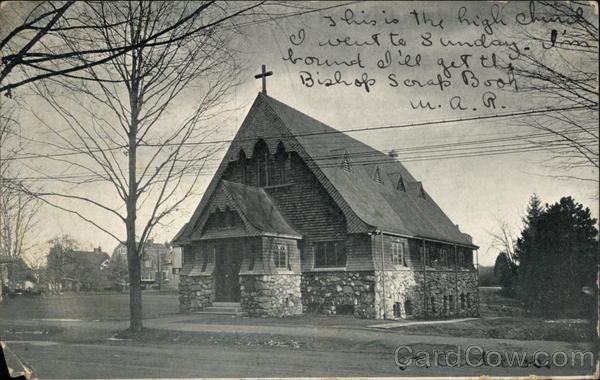 This is the high church
I went to Sunday. I'm
bound I'll get the
Bishop Scrap Book
M. A. R.
CardCow.com